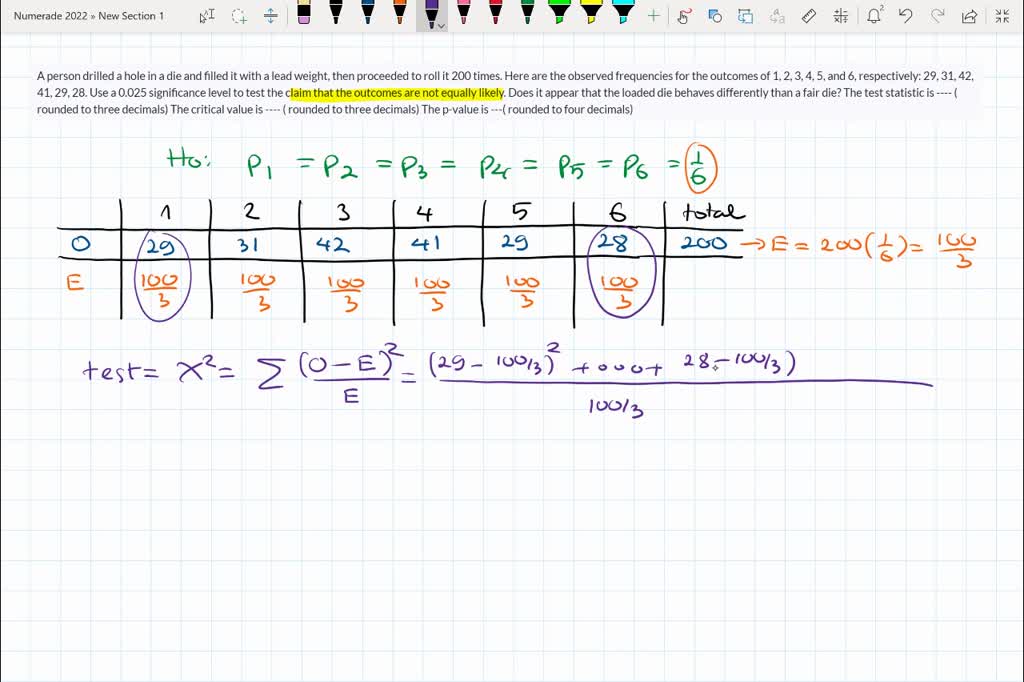 Numerade 2022 » New Section 1
2
A person drilled a hole in a die and filled it with a lead weight, then proceeded to roll it 200 times. Here are the observed frequencies for the outcomes of 1, 2, 3, 4, 5, and 6, respectively: 29, 31, 42,
41, 29, 28. Use a 0.025 significance level to test the claim that the outcomes are not equally likely. Does it appear that the loaded die behaves differently than a fair die? The test statistic is ---- (
rounded to three decimals) The critical value is ---- ( rounded to three decimals) The p-value is ---( rounded to four decimals)
Ho: P1 = P2 = P3 = P4 = P5 = P6 = 1/6
1 2 3 4 5 6 total
O 29 31 42 41 29 28 200 → E = 200(1/6) = 100/3
E 100/3 100/3 100/3 100/3 100/3 100/3
test = X² = Σ (O-E)²/E = (29 - 100/3)² + 000+ 28 - 100/3)
100/3